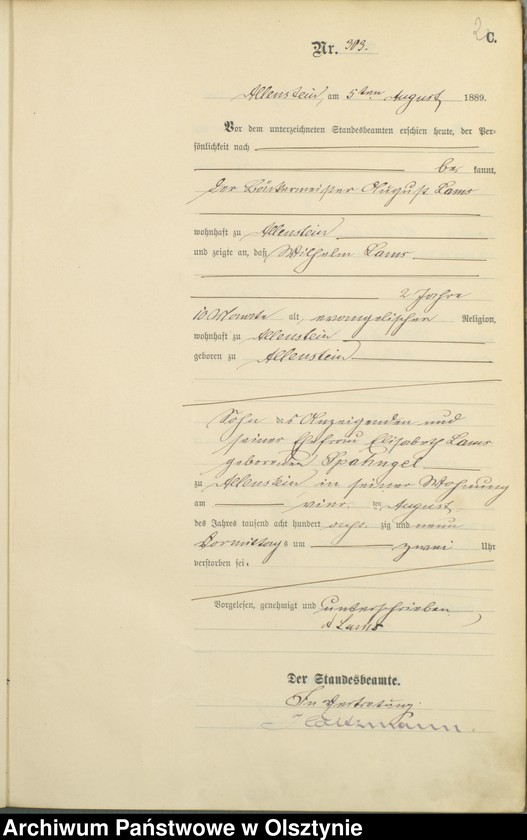 2
C.
Nr. 303.
Allenstein, am 5ten August 1889.
Vor dem unterzeichneten Standesbeamten erschien heute, der Per-
sönlichkeit nach
be kannt,
der Bäckermeister August Lams
wohnhaft zu Allenstein
und zeigte an, daß Wilhelm Lams
2 Jahre
10 Monate alt, evangelischer Religion,
wohnhaft zu Allenstein
geboren zu Allenstein
Sohn des Anzeigenden und
seiner Ehefrau Elisabeth Lams
geborenen
zu Allenstein in seiner Wohnung
am vier ten August
des Jahres tausend acht hundert acht zig und neun
Vormittags um zwei Uhr
verstorben sei.
Vorgelesen, genehmigt und unterschrieben
A Lams
Der Standesbeamte.
In Vertretung.
Archiwum Państwowe w Olsztynie